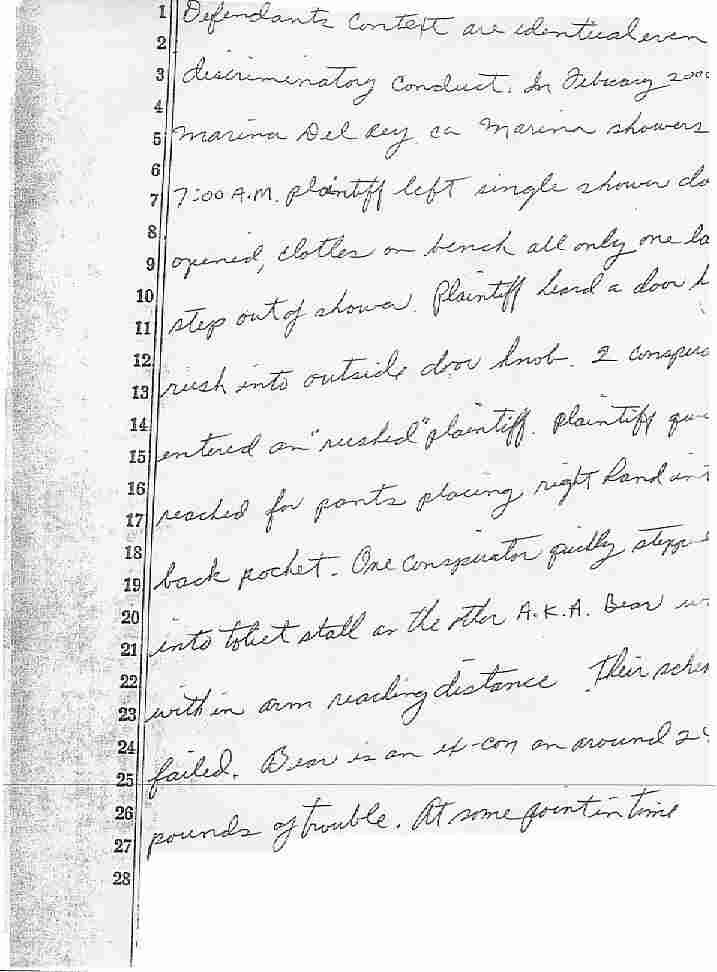 1 Defendants Context are identical even
2
3 discriminatory conduct. In February 200
4
5 Marina Del Rey ca Marina showers
6
7 7:00 A.M. plaintiff left single shower do
8
9 opened, clothes on bench all only one la
10
11 step out of shower. Plaintiff heard a door h
12
13 rush into outside door knob. 2 conspira
14
15 entered an "rushed" plaintiff. Plaintiff qui
16
17 reached for pants placing right hand int
18
19 back pocket. One conspirator quilly steppe
20
21 into toliet stall as the other A.K.A. Bear w
22
23 within arm reaching distance Their sche
24
25 failed. Bear is an ex-con an around 2
26
27 pounds of trouble. At some point in time
28